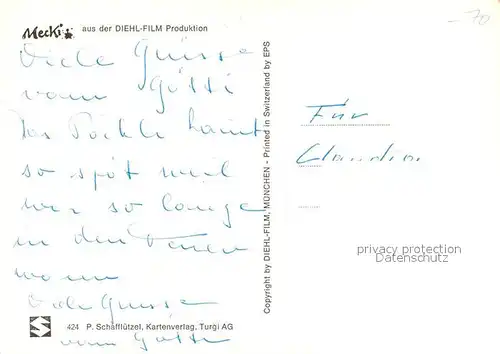 Mecki aus der DIEHL-FILM Produktion
70
Viele Grüsse
vom Götti
Das Päckli kommt
so spät weil
wir so lange
in den Ferien
waren
Viele Grüsse
vom Götti
424 P. Schafflützel, Kartenverlag, Turgi AG
Copyright by DIEHL-FILM, MÜNCHEN - Printed in Switzerland by EPS
Für
Claudia
privacy protection
Datenschutz